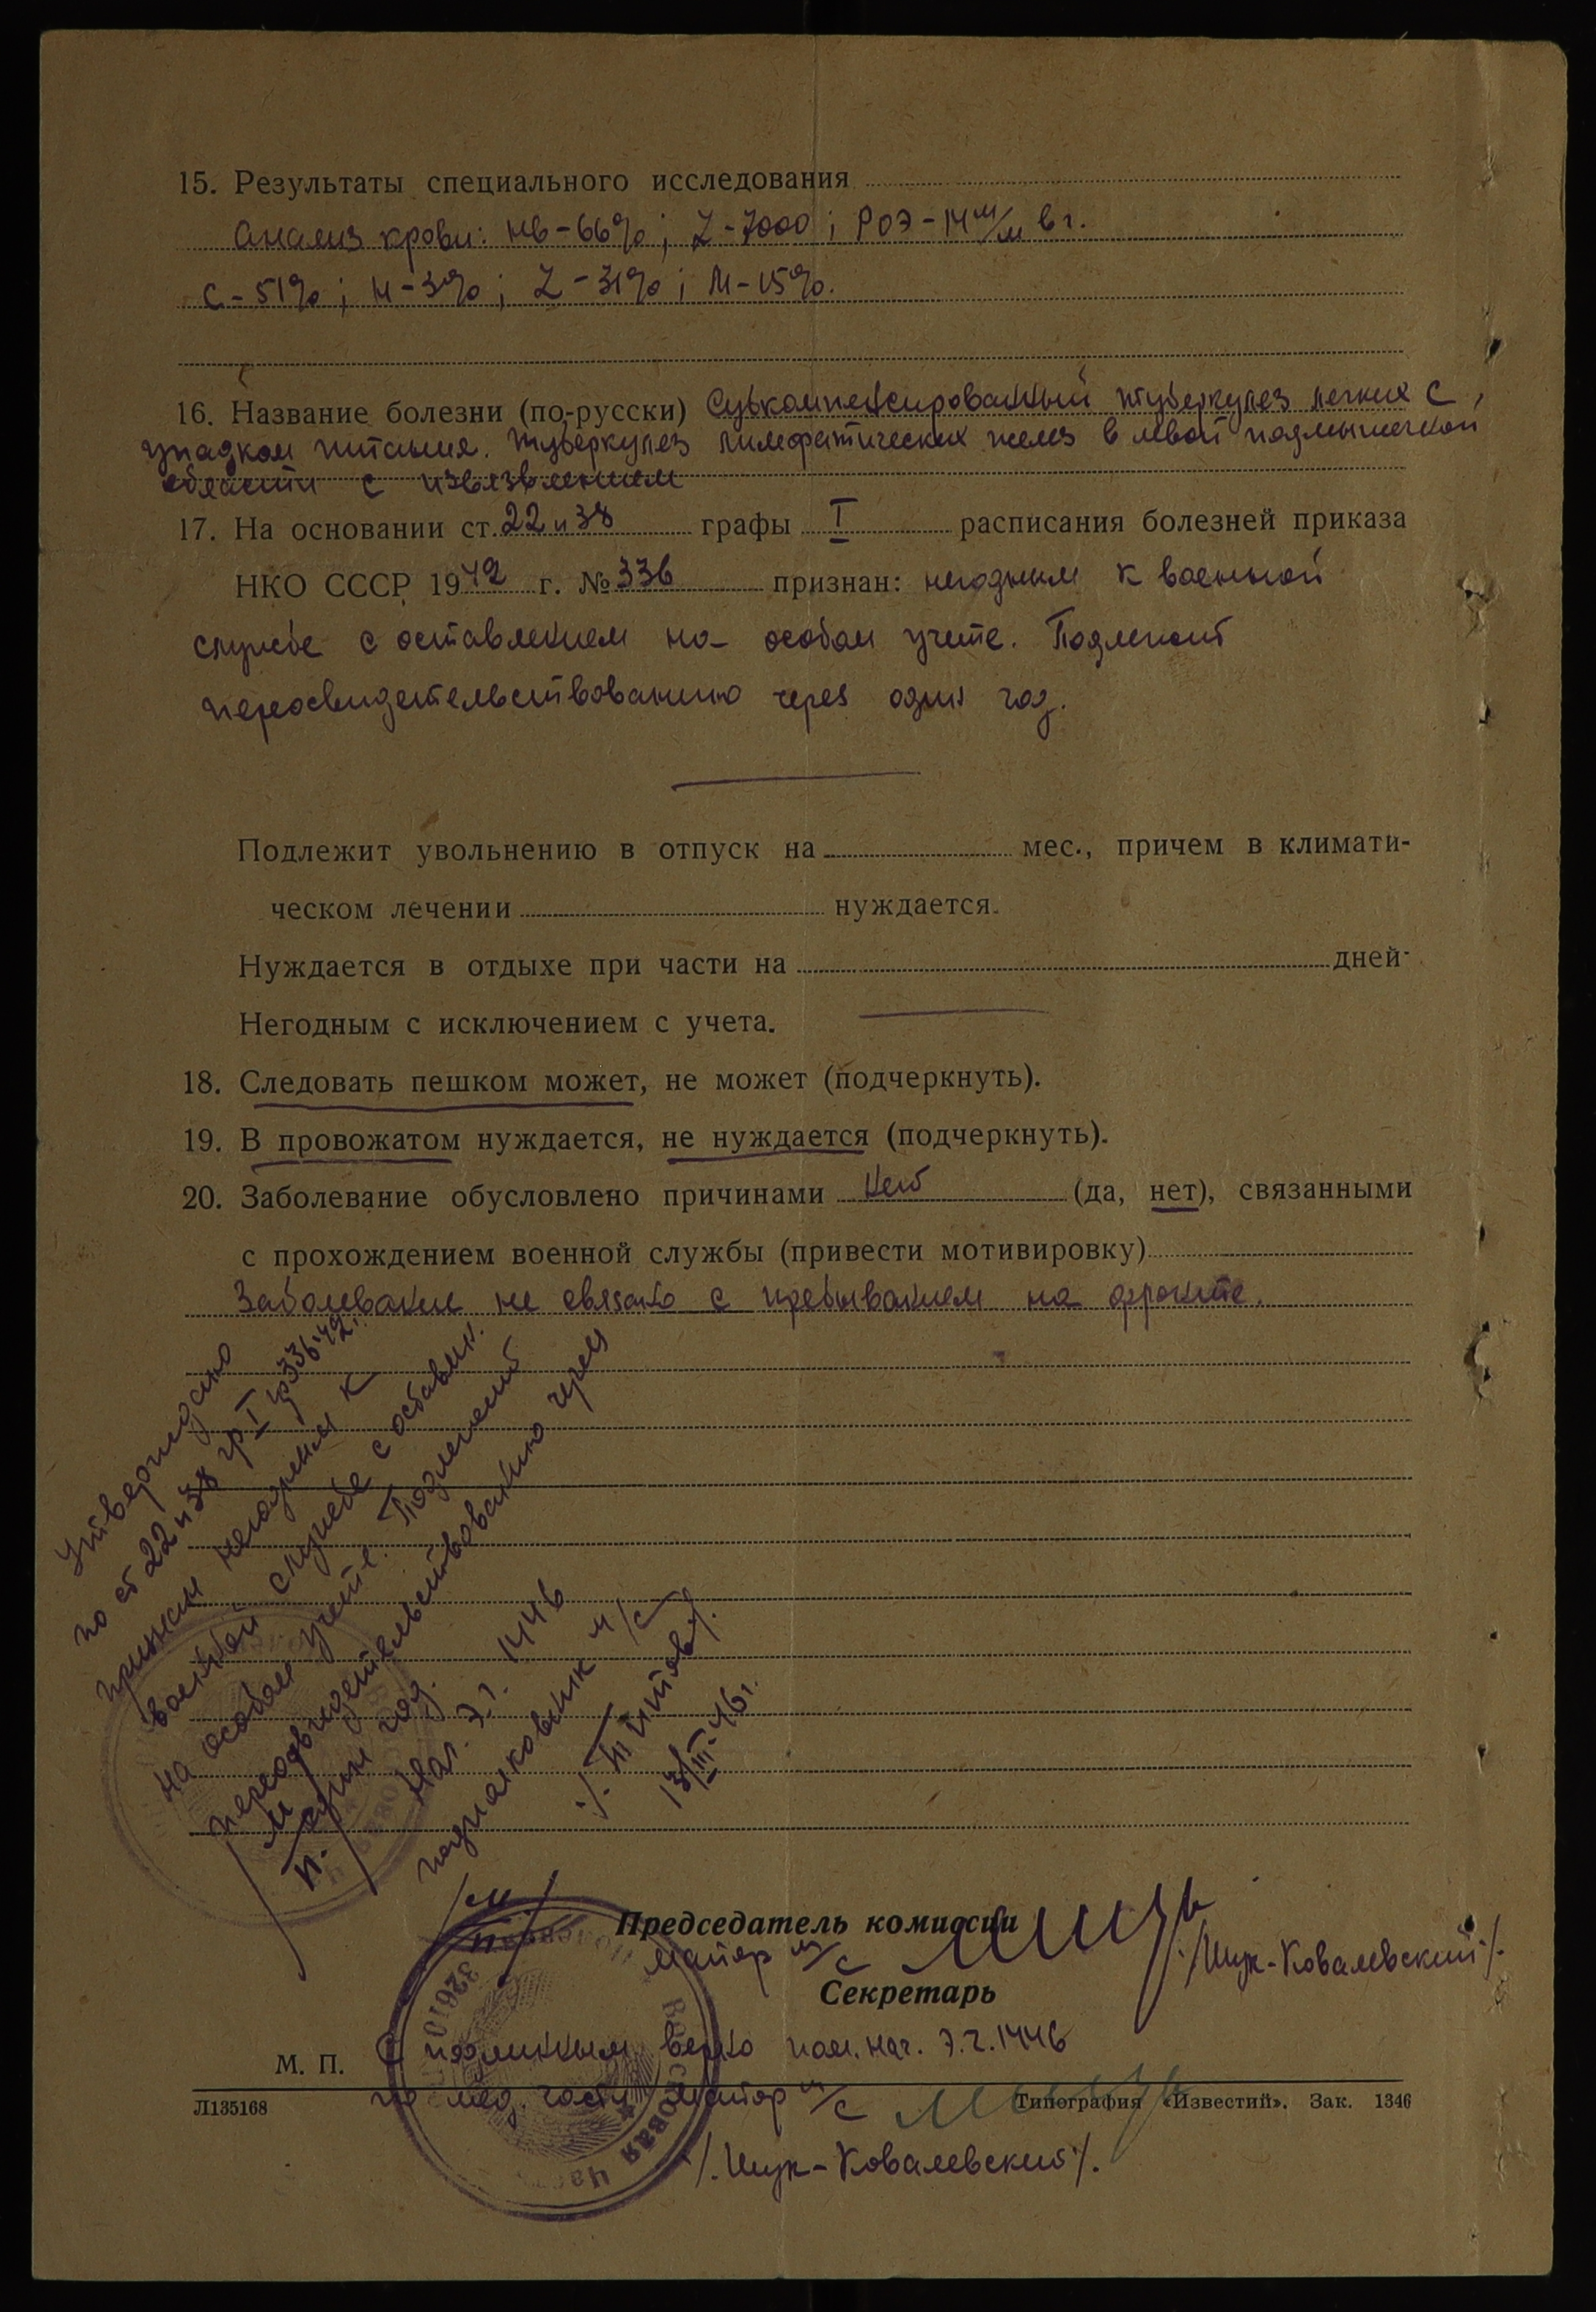 15. Результаты специального исследования
Анализ крови: Нв-66%; L-7000; РОЭ-14 м/м в ч.
с-51%; н-3%; L-31%; М-15%.
16. Название болезни (по-русски) Субкомпенсированный туберкулез легких с
упадком питания. Туберкулез лимфатических желез в левой подмышечной
области с изъязвлением
17. На основании ст. 22 и 38 графы I расписания болезней приказа
НКО СССР 1942 г. № 336 признан: негодным к военной
службе с оставлением на особом учете. Подлежит
переосвидетельствованию через один год.
Подлежит увольнению в отпуск на мес., причем в климати-
ческом лечении нуждается.
Нуждается в отдыхе при части на дней
Негодным с исключением с учета.
18. Следовать пешком может, не может (подчеркнуть).
19. В провожатом нуждается, не нуждается (подчеркнуть).
20. Заболевание обусловлено причинами нет (да, нет), связанными
с прохождением военной службы (привести мотивировку)
Заболевание не связано с пребыванием на фронте.
Утверждаю
по ст 22 и 38 гр I пр 336-42г.
признан негодным к
военной службе с оставлен.
на особом учете. Подлежит
переосвидетельствованию через
один год.
М
П.
Нач. Э.Г. 1446
подполковник м/с
/. Титов/.
13/III-46г.
Председатель комиссии
майор м/с
/Шур-Ковалевский/.
Секретарь
М. П.
С подлинным верно пом. нач. Э.Г. 1446
по мед. части майор м/с
/. Шур-Ковалевский/.
Л135168 Типография «Известий». Зак. 1346
32610
Войсковая часть